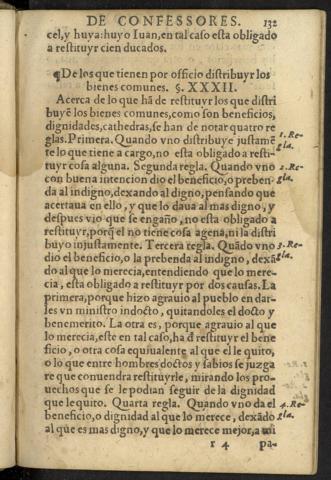 DE CONFESSORES. 132
cel, y huya: huyo Iuan, en tal caso esta obligado
a restituyr cien ducados.
¶De los que tienen por officio distribuyr los
bienes comunes. §. XXXII.
Acerca de lo que hã de restituyr los que distri
buyẽ los bienes comunes, como son beneficios,
dignidades, cathedras, se han de notar quatro re
glas. Primera. Quando vno distribuye justamẽ
te lo que tiene a cargo, no esta obligado a resti-
tuyr cosa alguna. Segunda regla. Quando vno
con buena intencion dio el beneficio, o preben-
da al indigno, dexando al digno, pensando que
acertaua en ello, y que lo daua al mas digno, y
despues vio que se engaño, no esta obligado a
restituyr, porq̃ el no tiene cosa agena, ni la distri
buyo injustamente. Tercera regla. Quãdo vno
dio el beneficio, o la prebenda al indigno, dexã
do al que lo merecia, entendiendo que lo mere-
cia, esta obligado a restituyr por dos causas. La
primera, porque hizo agrauio al pueblo en dar-
les vn ministro indocto, quitandoles el docto y
benemerito. La otra es, porque agrauio al que
lo merecia, este en tal caso, ha d̃ restituyr el bene
ficio, o otra cosa equiualente al que el le quito,
o lo que entre hombres doctos y sabios se juzga
re que conuendra restituyrle, mirando los pro-
uechos que se le podian seguir de la dignidad
que le quito. Quarta regla. Quando vno da el
beneficio, o dignidad al que lo merece, dexãdo
al que es mas digno, y que lo merece mejor, a mi
r 4 pa-
1. Re-
gla.
2. Re-
gla.
3. Re-
gla.
4. Re-
gla.